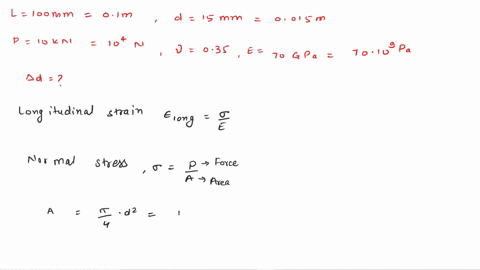 L = 100mm = 0.1m , d = 15 mm = 0.015 m
P = 10 kN = 10⁴ N , ν = 0.35 , E = 70 GPa = 70·10⁹ Pa
Δd = ?
Longitudinal strain εlong = σ/E
Normal stress , σ = P/A → Force → Area
A = π/4 · d² =